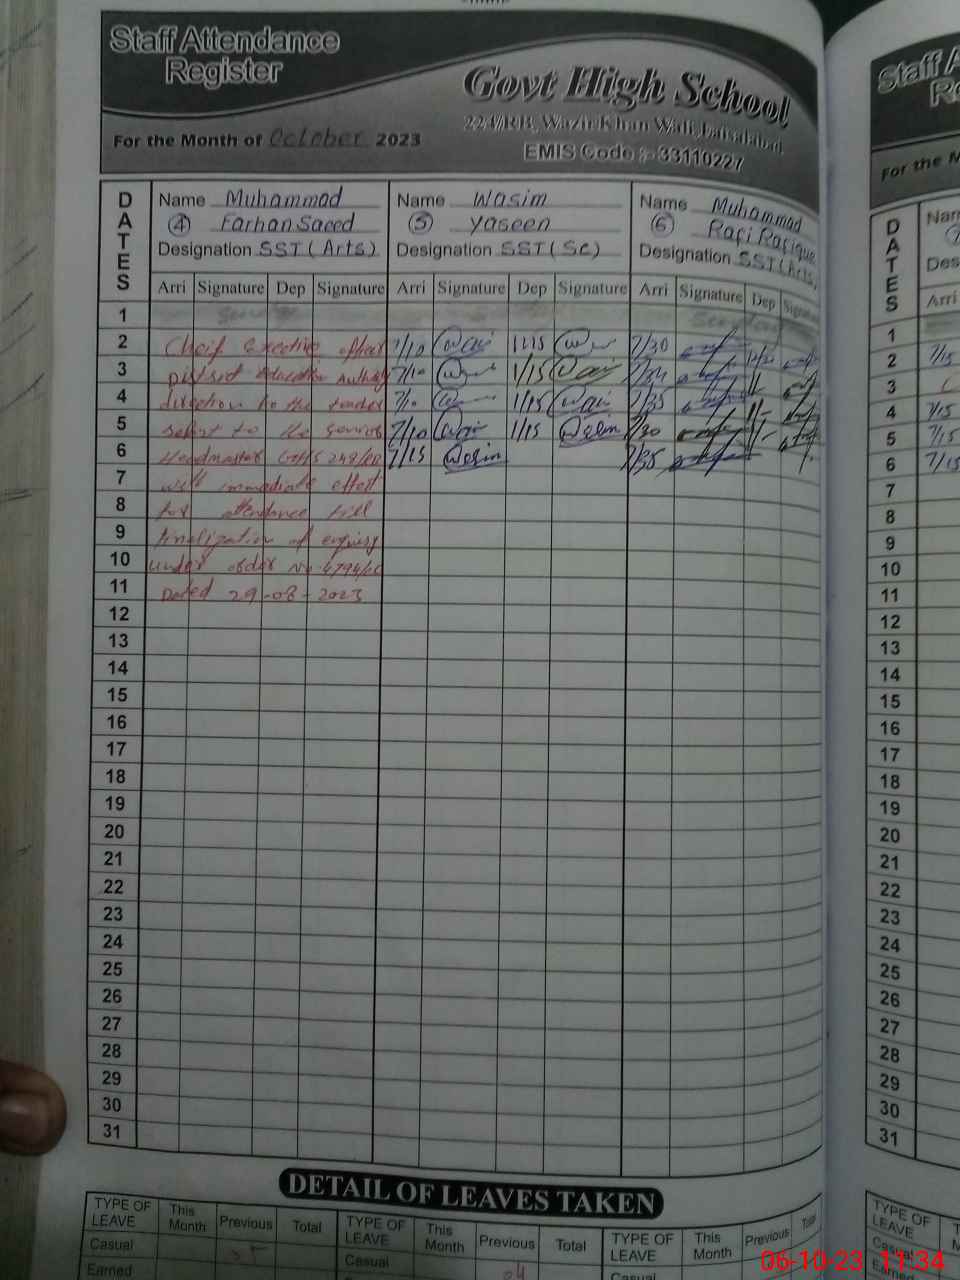 Staff Attendance
Register
Govt High School
224/RB, Wazir Khan Wali, Faisalabad
For the Month of October 2023
EMIS Code :- 33110227
DATES
Name Muhammad
④ Farhan Saeed
Designation SST (Arts)
Name Wasim
⑤ Yaseen
Designation SST (Sc)
Name Muhammad
⑥ Rafi Rafique
Designation SST (Arts)
Arri Signature Dep Signature Arri Signature Dep Signature Arri Signature Dep Signature
1 Sunday Sunday
2 Cheif Executive officer 7/10 1/15 7/30
3 District Education Authority 7/10 1/15
4 direction to the teacher 7/10 1/15 7/35
5 to the senior 7/10 1/15 Wasim 7/30
6 Headmaster GHS 248/RB 7/15 Wasim 7/35
7 with immediate effect
8 for attendance till
9 finalization of enquiry
10 under order No. 4794/
11 Dated 29-08-2023
12
13
14
15
16
17
18
19
20
21
22
23
24
25
26
27
28
29
30
31
DETAIL OF LEAVES TAKEN
TYPE OF LEAVE This Month Previous Total TYPE OF LEAVE This Month Previous Total TYPE OF LEAVE This Month Previous Total
Casual Casual 04 Casual
Earned
Staff A
Re
For the M
DATES
Nam
Des
Arri
1
2 7/15
3
4 7/15
5 7/15
6 7/15
7
8
9
10
11
12
13
14
15
16
17
18
19
20
21
22
23
24
25
26
27
28
29
30
31
TYPE OF
LEAVE
Casual
Earned
06-10-23 11:34